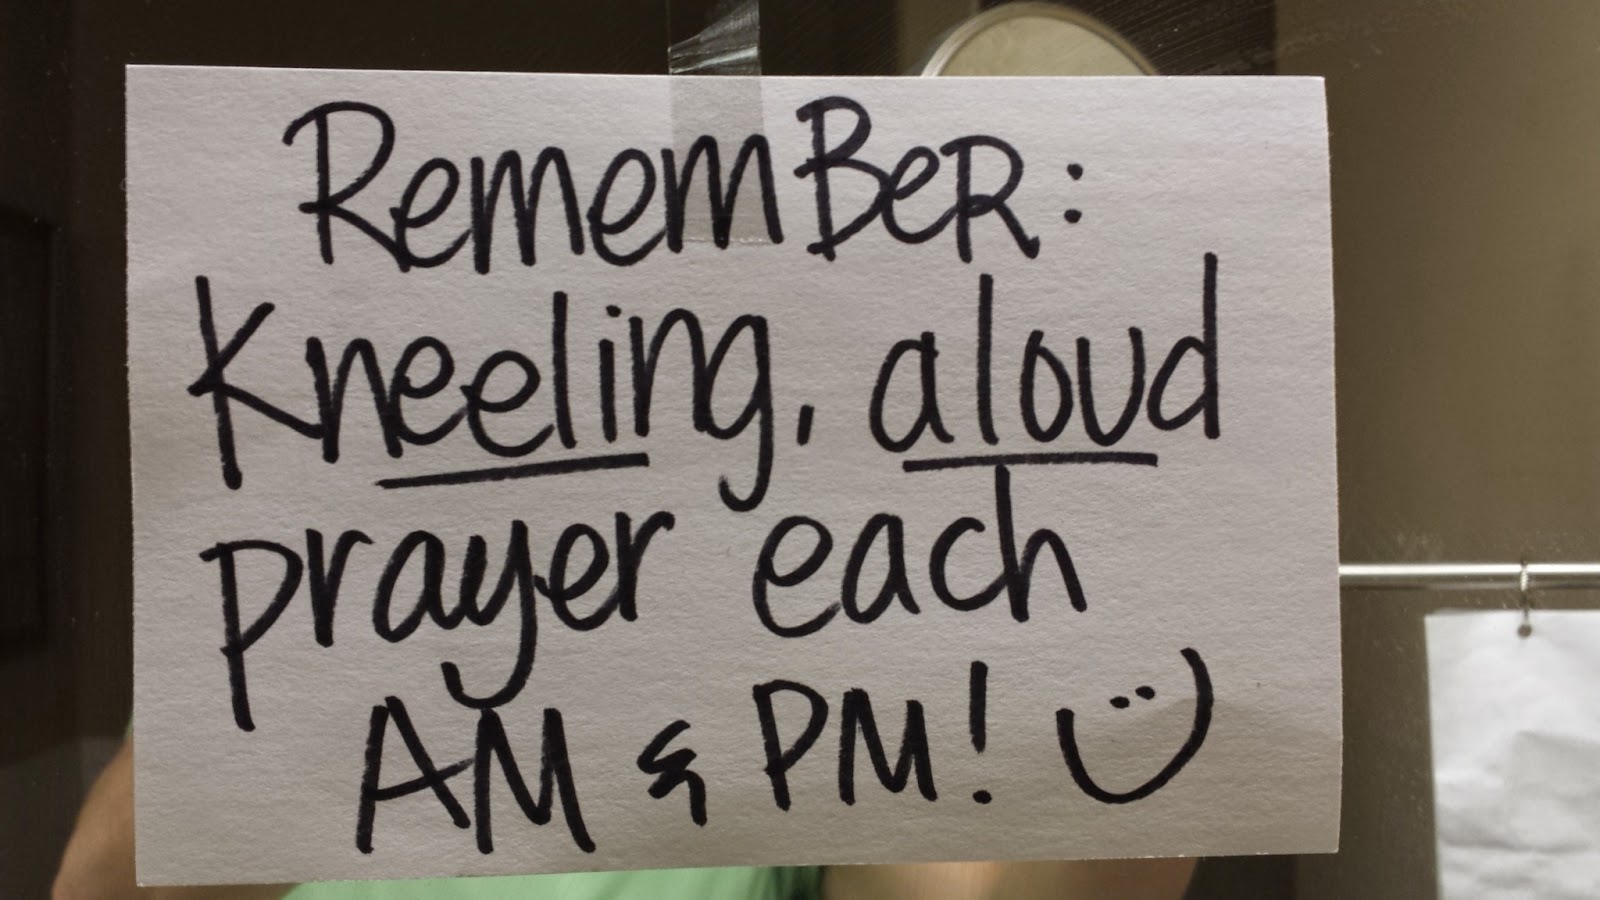 RememBeR:
Kneeling, aloud
prayer each
AM & PM!